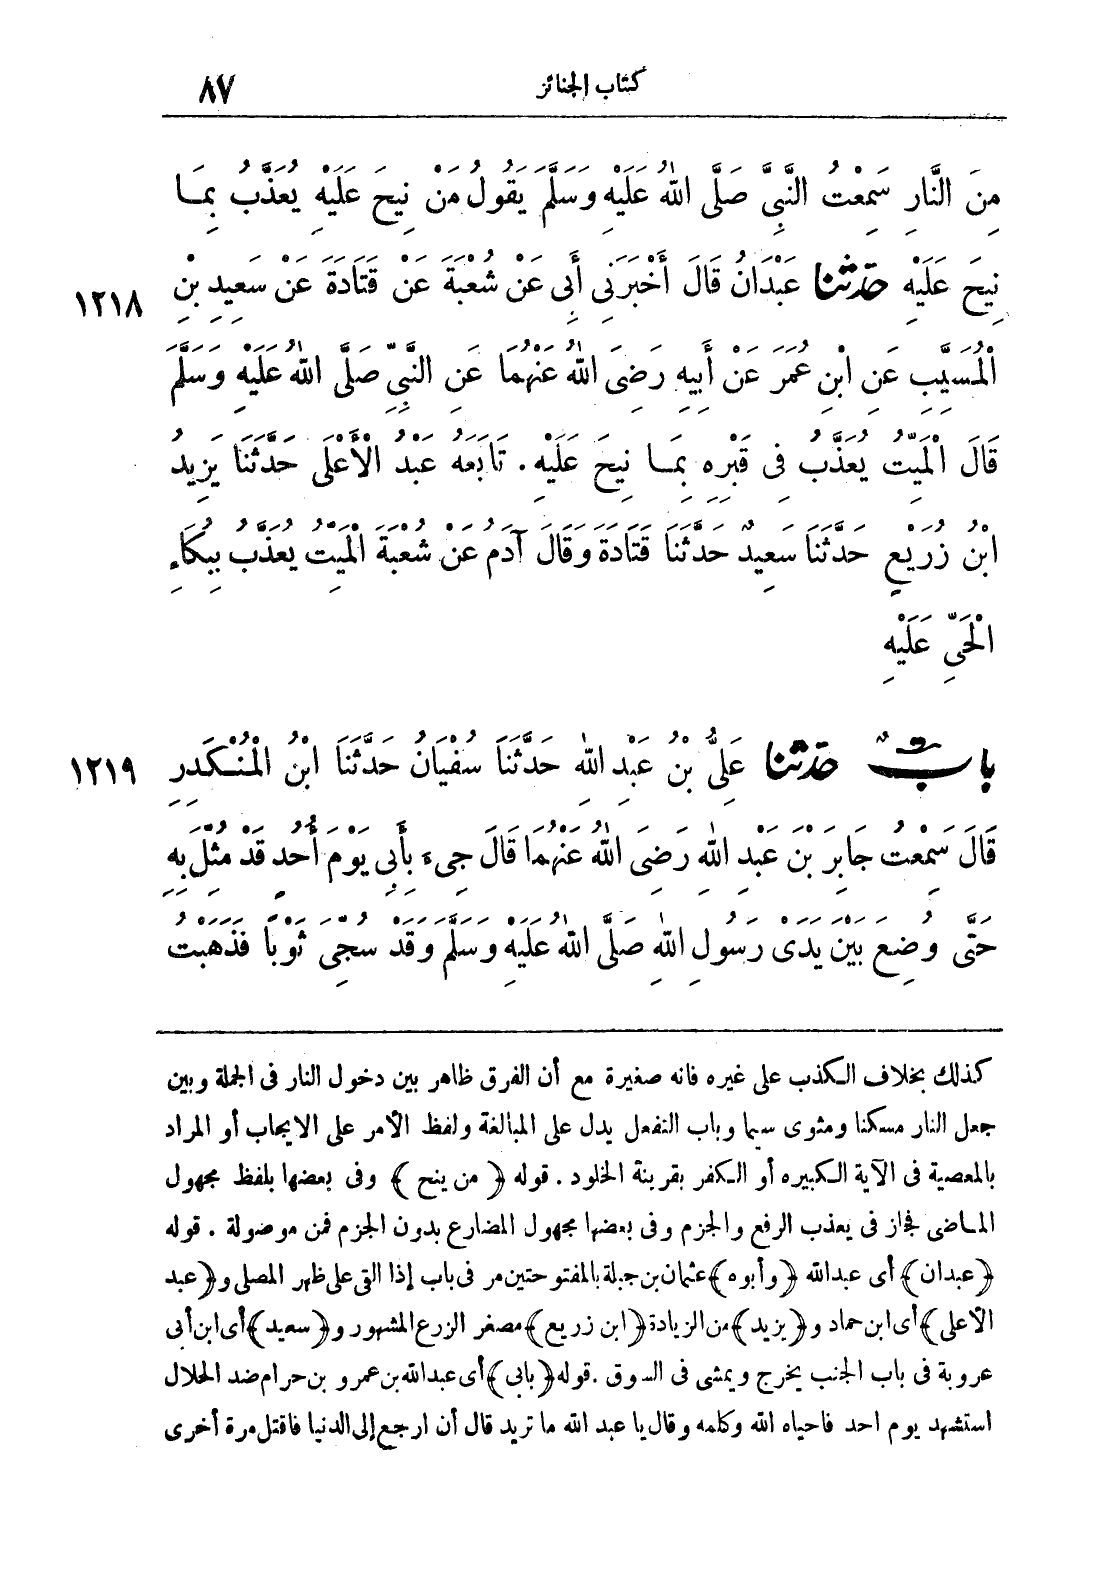 كتاب الجنائز ٨٧
مِنَ النَّارِ سَمِعْتُ النَّبِيَّ صَلَّى اللهُ عَلَيْهِ وَسَلَّمَ يَقُولُ مَنْ نِيحَ عَلَيْهِ يُعَذَّبُ بِمَا
نِيحَ عَلَيْهِ حَدَّثَنَا عَبْدَانُ قَالَ أَخْبَرَنِي أَبِي عَنْ شُعْبَةَ عَنْ قَتَادَةَ عَنْ سَعِيدِ بْنِ ١٢١٨
الْمُسَيِّبِ عَنِ ابْنِ عُمَرَ عَنْ أَبِيهِ رَضِيَ اللهُ عَنْهُمَا عَنِ النَّبِيِّ صَلَّى اللهُ عَلَيْهِ وَسَلَّمَ
قَالَ الْمَيِّتُ يُعَذَّبُ فِي قَبْرِهِ بِمَا نِيحَ عَلَيْهِ. تَابَعَهُ عَبْدُ الْأَعْلَى حَدَّثَنَا يَزِيدُ
ابْنُ زُرَيْعٍ حَدَّثَنَا سَعِيدٌ حَدَّثَنَا قَتَادَةُ وَقَالَ آدَمُ عَنْ شُعْبَةَ الْمَيِّتُ يُعَذَّبُ بِبُكَاءِ
الْحَيِّ عَلَيْهِ
بَابٌ حَدَّثَنَا عَلِيُّ بْنُ عَبْدِ اللهِ حَدَّثَنَا سُفْيَانُ حَدَّثَنَا ابْنُ الْمُنْكَدِرِ ١٢١٩
قَالَ سَمِعْتُ جَابِرَ بْنَ عَبْدِ اللهِ رَضِيَ اللهُ عَنْهُمَا قَالَ جِيءَ بِأَبِي يَوْمَ أُحُدٍ قَدْ مُثِّلَ بِهِ
حَتَّى وُضِعَ بَيْنَ يَدَيْ رَسُولِ اللهِ صَلَّى اللهُ عَلَيْهِ وَسَلَّمَ وَقَدْ سُجِّيَ ثَوْبًا فَذَهَبْتُ
كذلك بخلاف الكذب على غيره فانه صغيرة مع أن الفرق ظاهر بين دخول النار فى الجملة وبين
جعل النار مسكنا ومثوى سيما وباب التفعل يدل على المبالغة ولفظ الأمر على الايجاب أو المراد
بالمعصية فى الآية الكبيره أو الكفر بقرينة الخلود . قوله ﴿ من ينح ﴾ وفى بعضها بلفظ مجهول
الماضى فجاز فى يعذب الرفع والجزم وفى بعضها مجهول المضارع بدون الجزم فمن موصولة . قوله
﴿عبدان﴾ أى عبدالله ﴿وأبوه﴾ عثمان بن جبلة بالمفتوحتين مر فى باب إذا القى على ظهر المصلى و﴿عبد
الأعلى﴾ أى ابن حماد و﴿يزيد﴾ من الزيادة ﴿ابن زريع﴾ مصغر الزرع المشهور و﴿سعيد﴾ أى ابن أبى
عروبة فى باب الجنب يخرج ويمشى فى السوق . قوله ﴿بابى﴾ أى عبدالله بن عمرو بن حرام ضد الحلال
استشهد يوم احد فاحياه الله وكلمه وقال يا عبد الله ما تريد قال أن ارجع إلى الدنيا فاقتل مرة أخرى